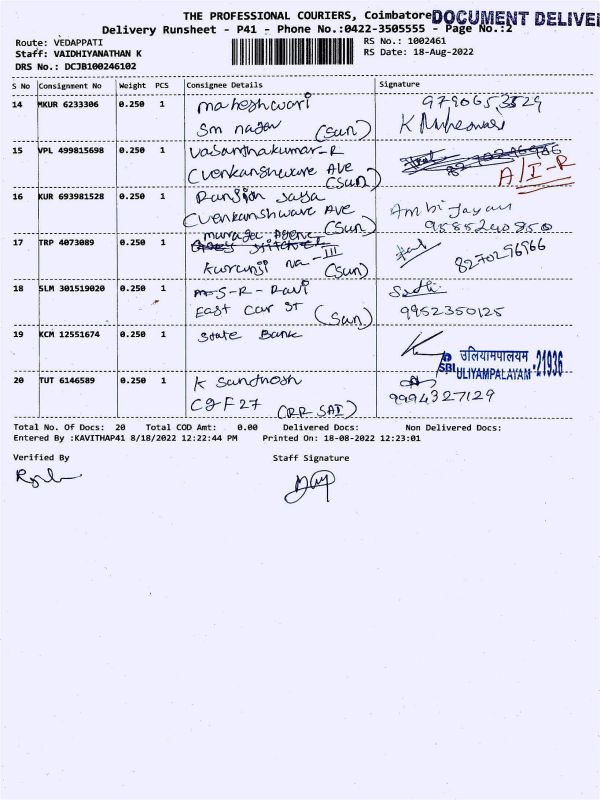 THE PROFESSIONAL COURIERS, Coimbatore
DOCUMENT DELIVE
Delivery Runsheet - P41 - Phone No.:0422-3505555 - Page No.:2
Route: VEDAPPATI
RS No.: 1002461
Staff: VAIDHIYANATHAN K
RS Date: 18-Aug-2022
DRS No.: DCJB100246102
S No Consignment No Weight PCS Consignee Details Signature
14 MKUR 6233306 0.250 1 maheshwari
Sm nagar (Sun)
15 VPL 499815698 0.250 1 Vasanthakumar-R
Ave (Sun)
A/I-R
16 KUR 693981528 0.250 1 Ranjion Jaya
Ave (Sun)
Ambi Jayan
9585240850
17 TRP 4073089 0.250 1 muruga Agenc
Kurunji Na - III (Sun)
8270296966
18 SLM 301519020 0.250 1 m-S-R-Ravi
East Car ST (Sun)
9952350125
19 KCM 12551674 0.250 1 State Bank
SBI उलियामपालयम
ULIYAMPALAYAM -21936
20 TUT 6146589 0.250 1 K Santhosh
CJF27 (RR SAI)
9994327129
Total No. Of Docs: 20 Total COD Amt: 0.00 Delivered Docs: Non Delivered Docs:
Entered By :KAVITHAP41 8/18/2022 12:22:44 PM Printed On: 18-08-2022 12:23:01
Verified By Staff Signature